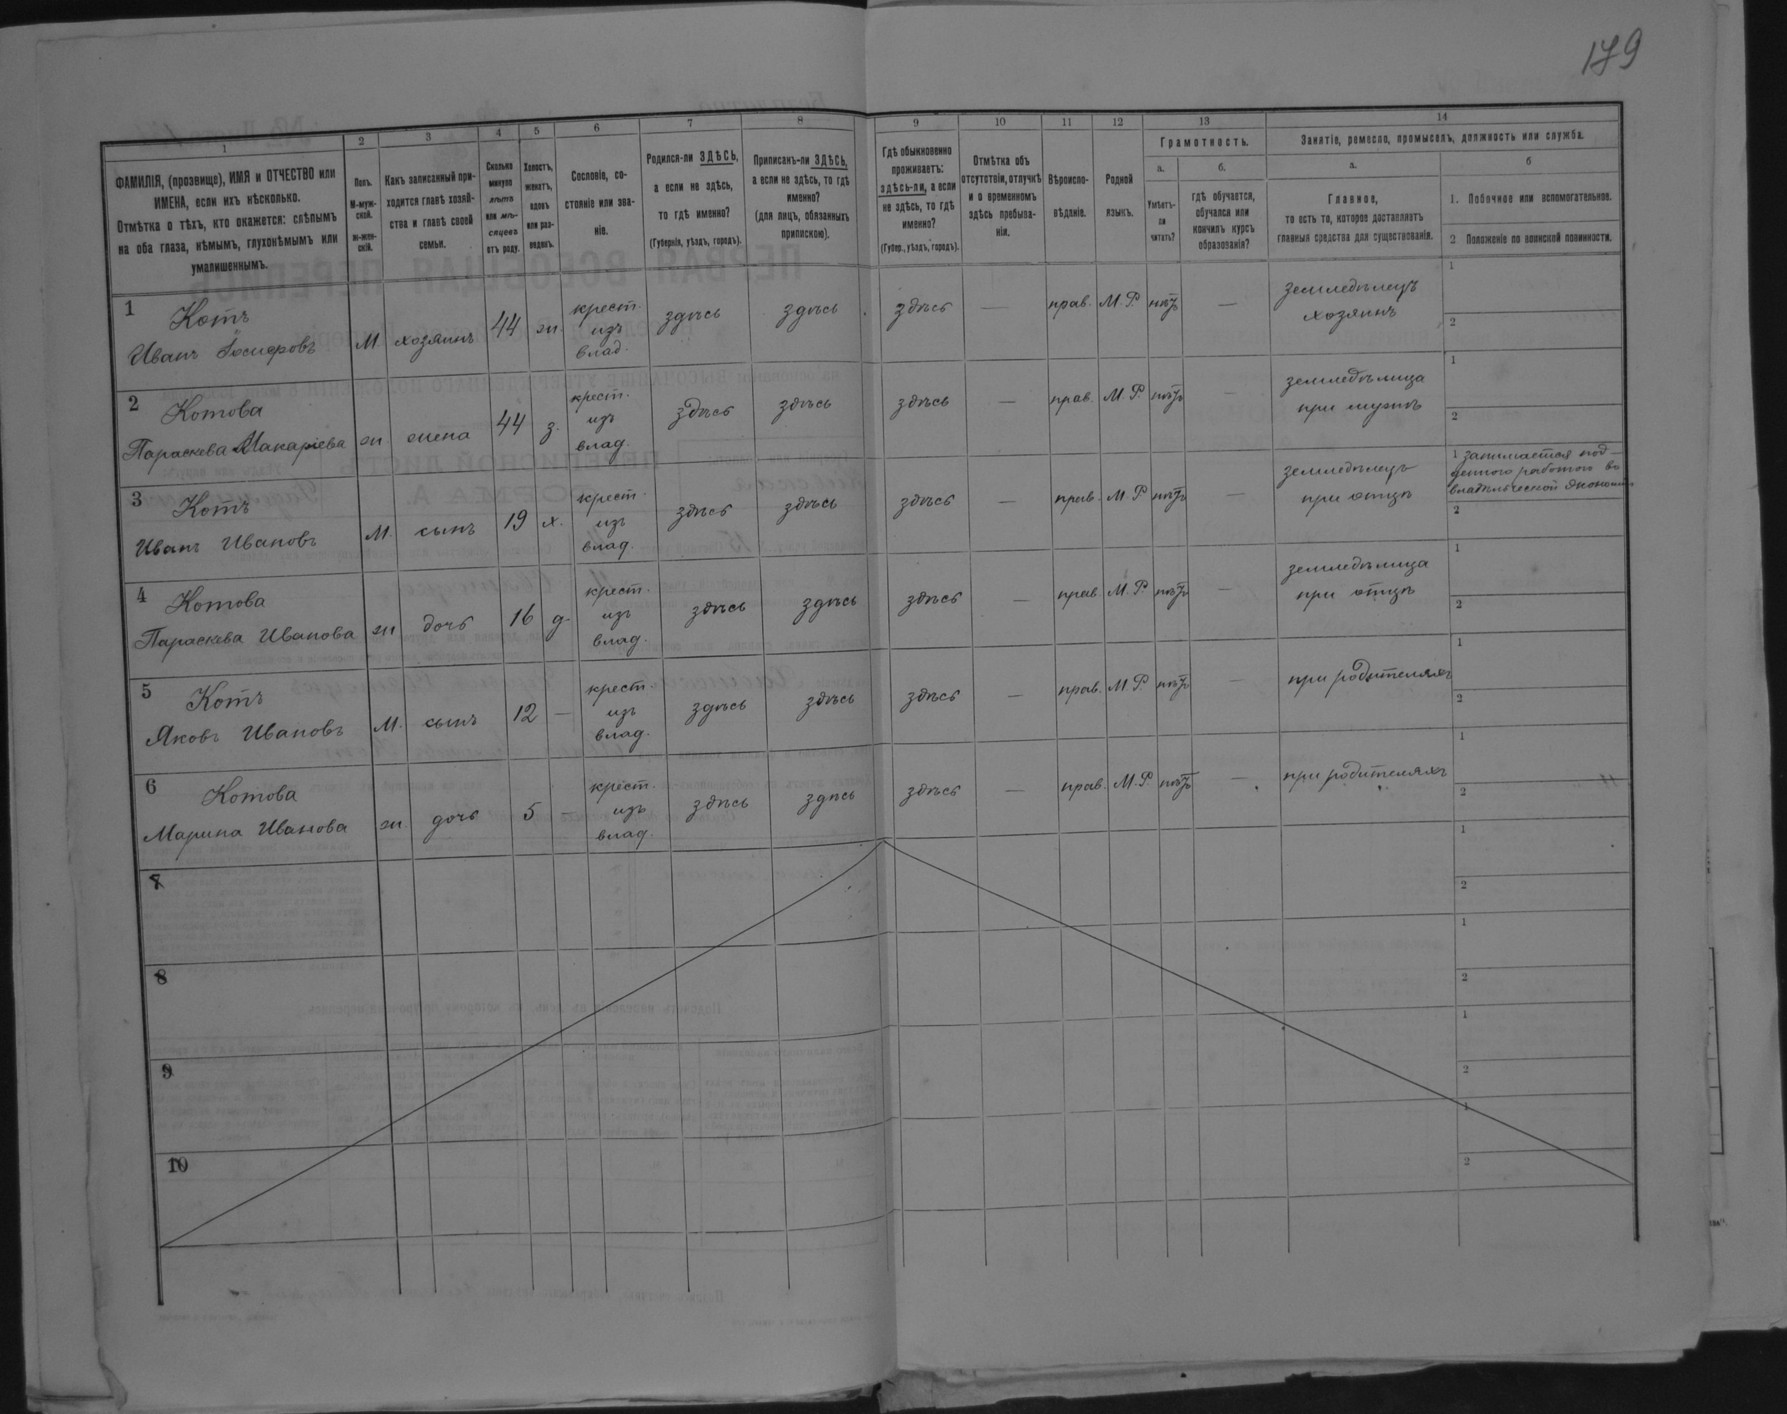 179
1
2
3
4
5
6
7
8
9
10
11
12
13
14
ФАМИЛІЯ, (прозвище), ИМЯ и ОТЧЕСТВО или
ИМЕНА, если ихъ нѣсколько.
Отмѣтка о тѣхъ, кто окажется: слѣпымъ
на оба глаза, нѣмымъ, глухонѣмымъ или
умалишеннымъ.
Полъ.
М-муж-
ской.
ж-жен-
скій.
Какъ записанный при-
ходится главѣ хозяй-
ства и главѣ своей
семьи.
Сколько
минуло
лѣтъ
или мѣ-
сяцевъ
отъ роду.
Холостъ,
женатъ,
вдовъ
или раз-
веденъ.
Сословіе, со-
стояніе или зва-
ніе.
Родился-ли ЗДѢСЬ,
а если не здѣсь,
то гдѣ именно?
(Губернія, уѣздъ, городъ).
Приписанъ-ли ЗДѢСЬ,
а если не здѣсь, то гдѣ
именно?
(для лицъ, обязанныхъ
припискою).
Гдѣ обыкновенно
проживаетъ:
здѣсь-ли, а если
не здѣсь, то гдѣ
именно?
(Губер., уѣздъ, городъ).
Отмѣтка объ
отсутствіи, отлучкѣ
и о временномъ
здѣсь пребыва-
ніи.
Вѣроиспо-
вѣданіе.
Родной
языкъ.
Грамотность.
а.
б.
Умѣетъ-
ли
читать?
гдѣ обучается,
обучался или
кончилъ курсъ
образованія?
Занятіе, ремесло, промыселъ, должность или служба.
а.
б
Главное,
то есть то, которое доставляетъ
главныя средства для существованія.
1. Побочное или вспомогательное.
2 Положеніе по воинской повинности.
1 Котъ
Иванъ М хозяинъ 44 ж. крест. изъ влад. здѣсь здѣсь здѣсь — прав. М. Р. нѣтъ — земледѣлецъ хозяинъ 1 2
2 Котова
Параскева Макарiева ж жена 44 з. крест. изъ влад. здѣсь здѣсь здѣсь — прав. М. Р. нѣтъ — земледѣлица при мужѣ 1 2
3 Котъ
Иванъ Ивановъ М. сынъ 19 х. крест. изъ влад. здѣсь здѣсь здѣсь — прав. М Р нѣтъ — земледѣлецъ при отцѣ 1 занимается под-
денною работою въ
владѣльческой экономіи
2
4 Котова
Параскева Иванова ж дочь 16 д. крест. изъ влад. здѣсь здѣсь здѣсь — прав М. Р. нѣтъ — земледѣлица при отцѣ 1 2
5 Котъ
Яковъ Ивановъ М. сынъ 12 — крест изъ влад. здѣсь здѣсь здѣсь — прав. М Р. нѣтъ — при родителяхъ 1 2
6 Котова
Марина Иванова ж. дочь 5 — крест. изъ влад. здѣсь здѣсь здѣсь — прав. М. Р. нѣтъ — при родителяхъ 1 2
7 1 2
8 1 2
9 1 2
10 1 2